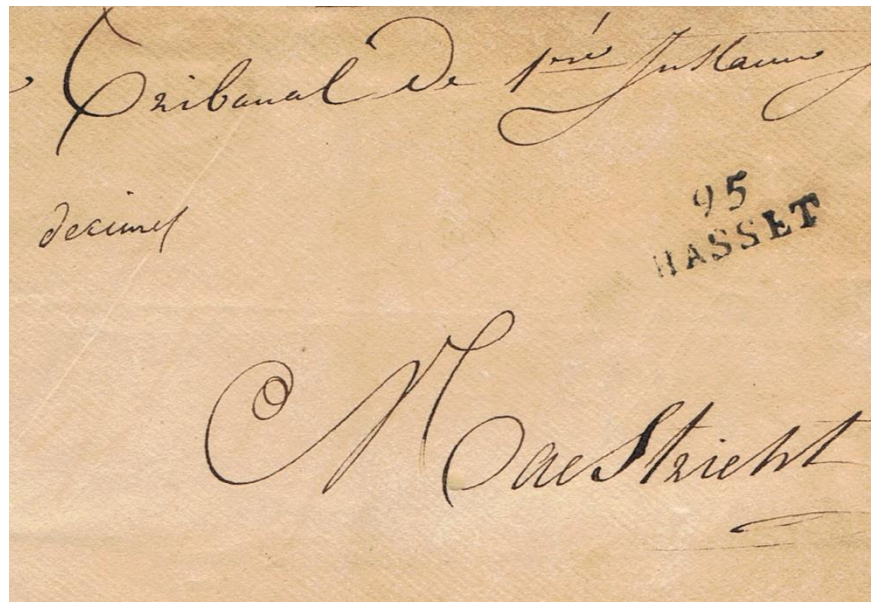 Tribunal De 1ère Instance
95
HASSET
Maestricht